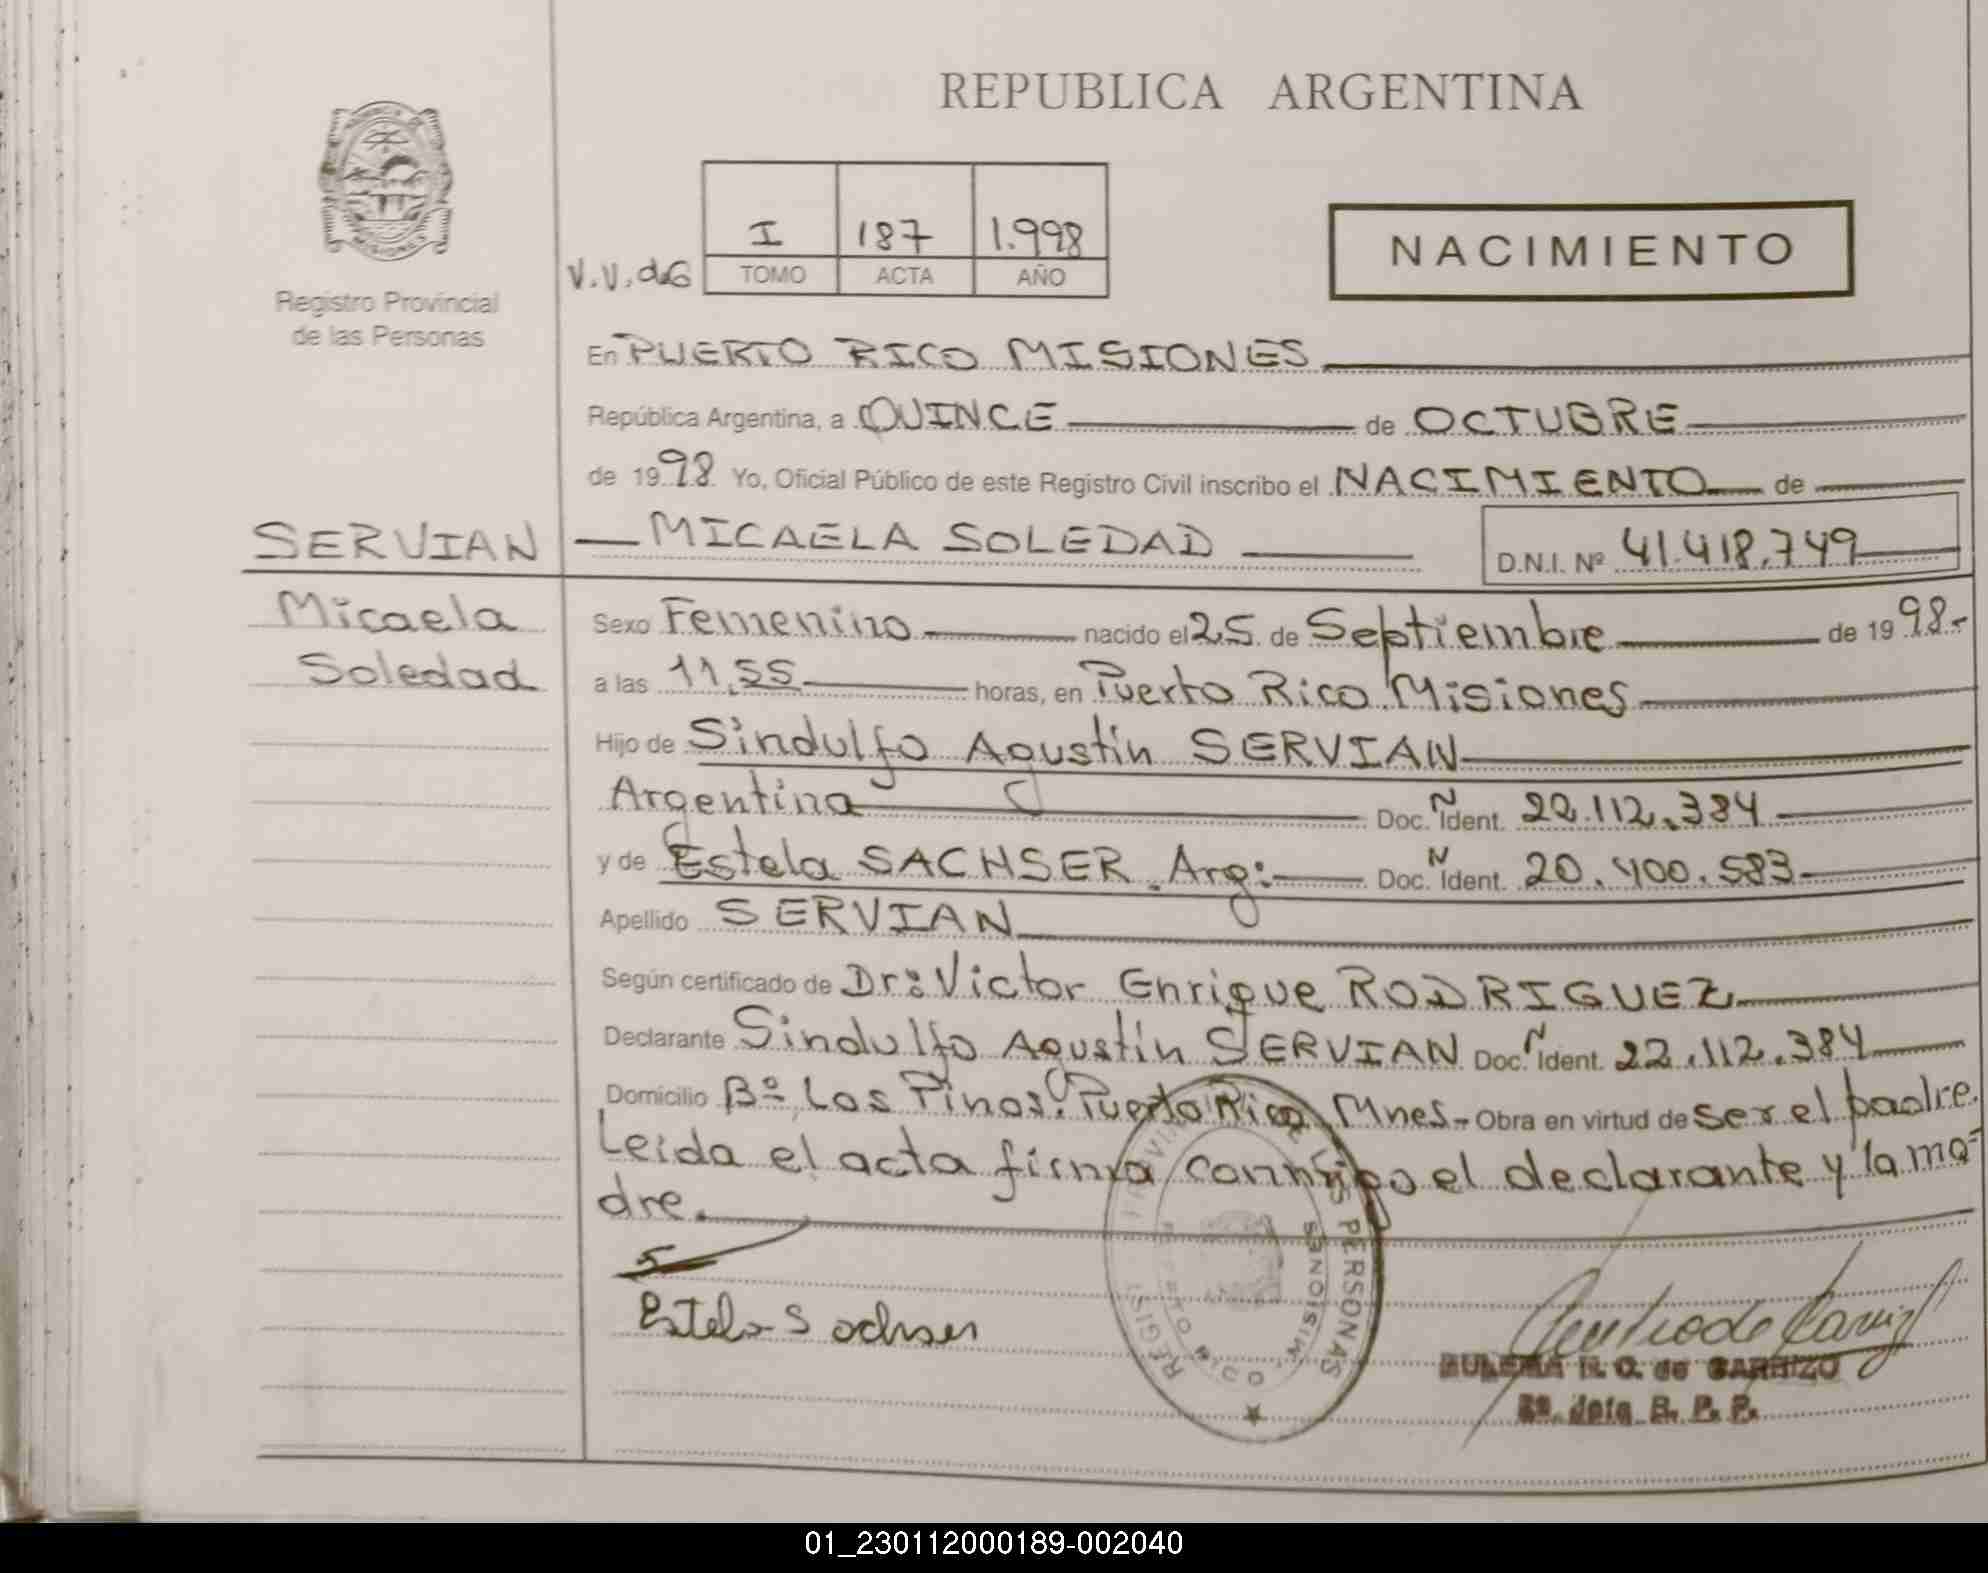 REPUBLICA ARGENTINA
I 187 1.998
V.V. de G TOMO ACTA AÑO
NACIMIENTO
MISIONES
Registro Provincial
de las Personas
En PUERTO RICO MISIONES
República Argentina, a QUINCE de OCTUBRE
de 1998 Yo, Oficial Público de este Registro Civil inscribo el NACIMIENTO de
SERVIAN MICAELA SOLEDAD D.N.I. Nº 41.418.749
Micaela Sexo Femenino nacido el 25 de Septiembre de 1998.-
Soledad a las 11,55 horas, en Puerto Rico Misiones
Hijo de Sindulfo Agustín SERVIAN
Argentina Doc. N Ident. 22.112.384
y de Estela SACHSER. Arg: Doc. N Ident. 20.400.583
Apellido SERVIAN
Según certificado de Dr: Victor Enrique RODRIGUEZ
Declarante Sindulfo Agustín SERVIAN Doc. N Ident. 22.112.384
Domicilio Bº Los Pinos. Puerto Rico Mnes.- Obra en virtud de ser el padre.
Leida el acta firma conmigo el declarante y la ma=
dre.
Estela Sachser
PERSONAS
MISIONES
DE CARRIZO
01_230112000189-002040